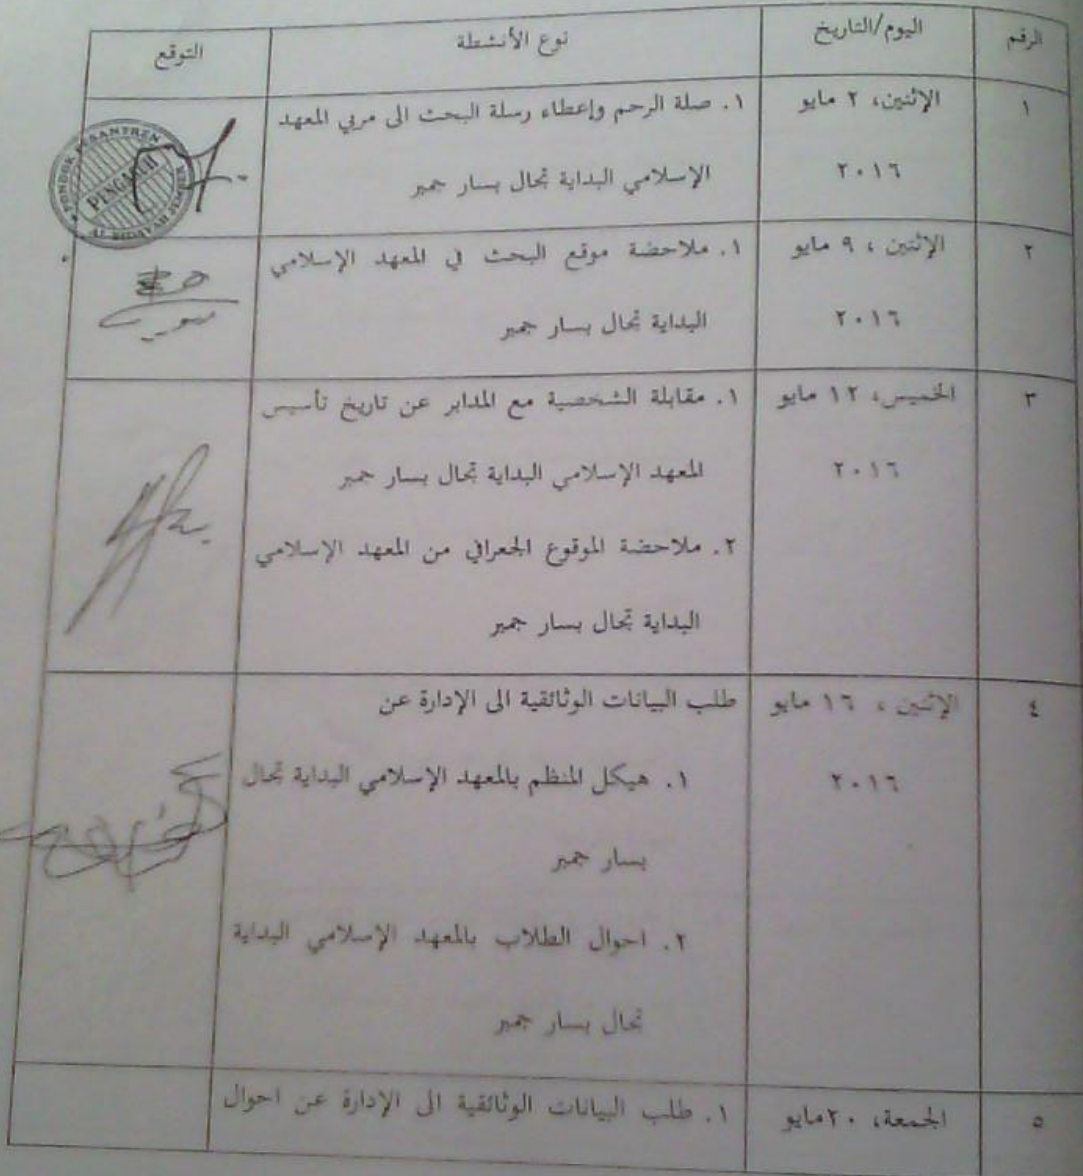 الرقم اليوم/التاريخ نوع الأنشطة التوقع
١ الإثنين، ٢ مايو ١. صلة الرحم وإعطاء رسلة البحث الى مربي المعهد
٢٠١٦ الإسلامي البداية تحال بسار جمبر
PONDOK PESANTREN
PENGASUH
AL BIDAYAH
٢ الإثنين ، ٩ مايو ١. ملاحضة موقع البحث في المعهد الإسلامي
٢٠١٦ البداية تحال بسار جمبر
٣ الخميس، ١٢ مايو ١. مقابلة الشخصية مع المدابر عن تاريخ تأسيس
٢٠١٦ المعهد الإسلامي البداية تحال بسار جمبر
٢. ملاحضة الموقوع الجعرافي من المعهد الإسلامي
البداية تحال بسار جمبر
٤ الإثنين ، ١٦ مايو طلب البيانات الوثائقية الى الإدارة عن
٢٠١٦ ١. هيكل المنظم بالمعهد الإسلامي البداية تحال
بسار جمبر
٢. احوال الطلاب بالمعهد الإسلامي البداية
تحال بسار جمبر
٥ الجمعة، ٢٠مايو ١. طلب البيانات الوثائقية الى الإدارة عن احوال